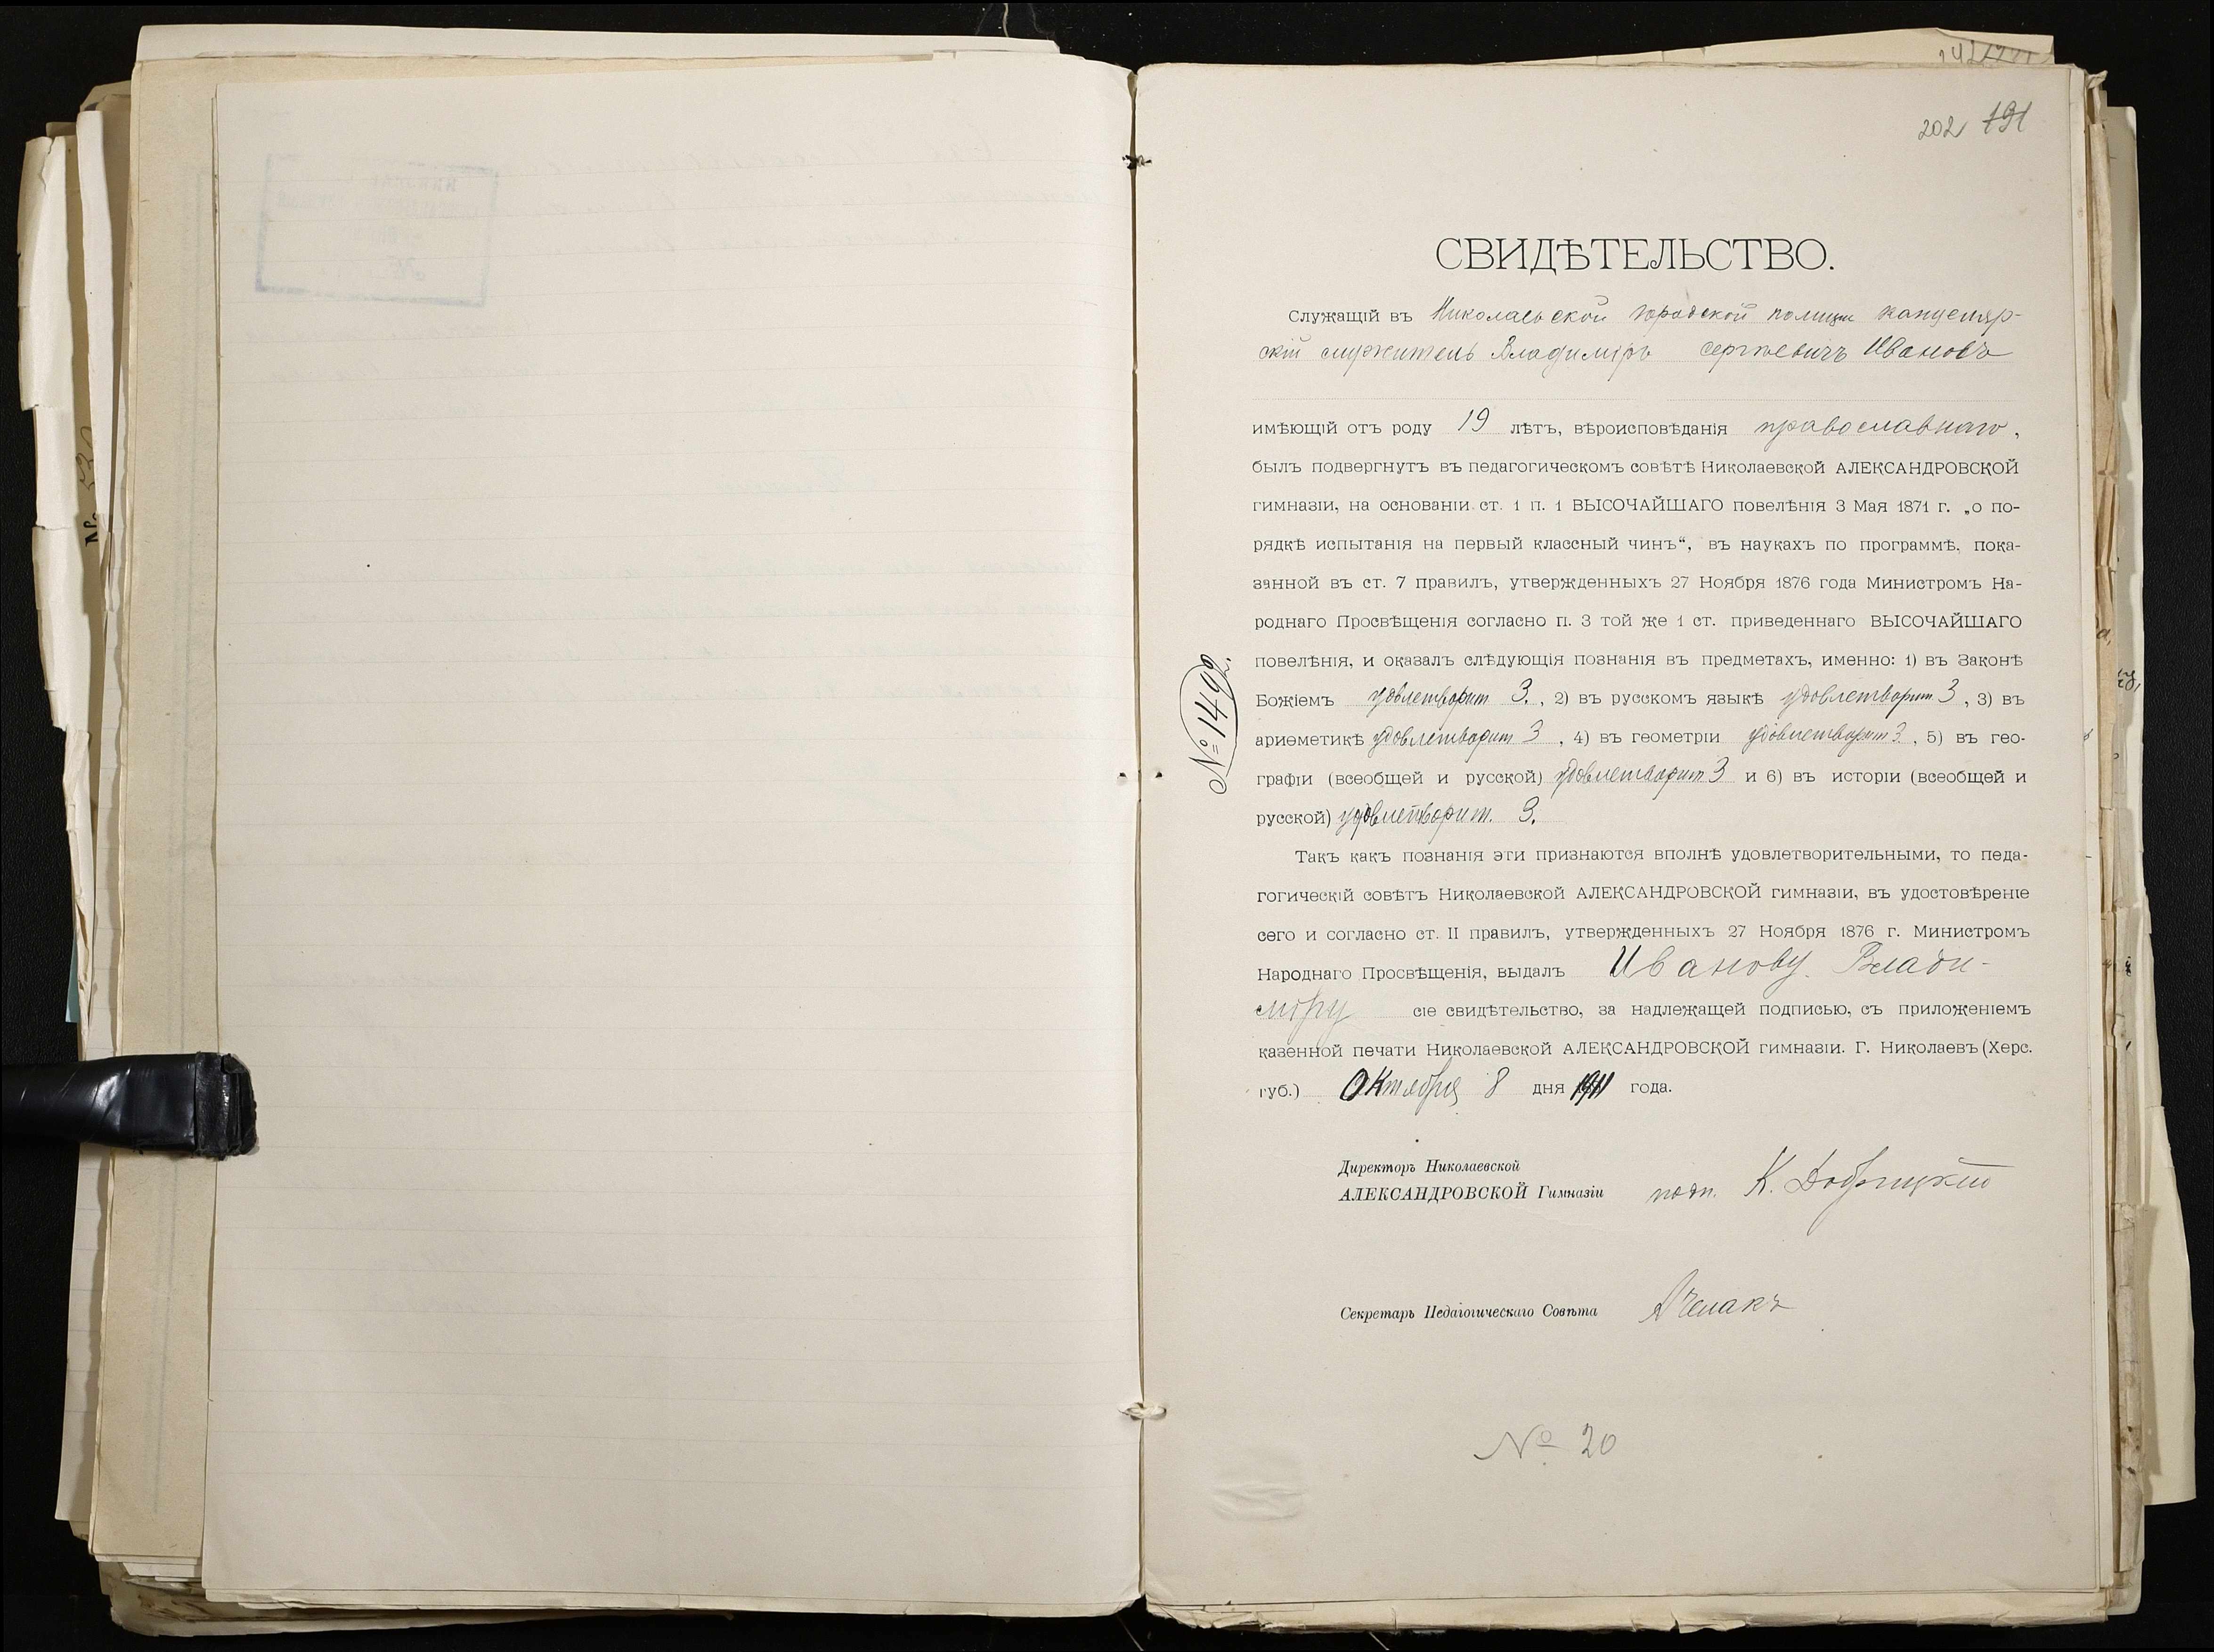 202 191
СВИДѢТЕЛЬСТВО.
Служащій въ Николаевской городской полиціи канцеляр-
скій служитель Владиміръ Сергѣевичъ Ивановъ
имѣющій отъ роду 19 лѣтъ, вѣроисповѣданія православнаго,
былъ подвергнутъ въ педагогическомъ совѣтѣ Николаевской АЛЕКСАНДРОВСКОЙ
гимназіи, на основаніи ст. 1 п. 1 ВЫСОЧАЙШАГО повелѣнія 3 Мая 1871 г. „о по-
рядкѣ испытанія на первый классный чинъ“, въ наукахъ по программѣ, пока-
занной въ ст. 7 правилъ, утвержденныхъ 27 Ноября 1876 года Министромъ На-
роднаго Просвѣщенія согласно п. 3 той же 1 ст. приведеннаго ВЫСОЧАЙШАГО
повелѣнія, и оказалъ слѣдующія познанія въ предметахъ, именно: 1) въ Законѣ
Божіемъ удовлетворит 3. , 2) въ русскомъ языкѣ удовлетворит 3 , 3) въ
ариѳметикѣ удовлетворит 3 , 4) въ геометріи удовлетворит 3 , 5) въ гео-
графіи (всеобщей и русской) удовлетворит 3 и 6) въ исторіи (всеобщей и
русской) удовлетворит. 3.
Такъ какъ познанія эти признаются вполнѣ удовлетворительными, то педа-
гогическій совѣтъ Николаевской АЛЕКСАНДРОВСКОЙ гимназіи, въ удостовѣреніе
сего и согласно ст. II правилъ, утвержденныхъ 27 Ноября 1876 г. Министромъ
Народнаго Просвѣщенія, выдалъ Иванову Влади-
міру сіе свидѣтельство, за надлежащей подписью, съ приложеніемъ
казенной печати Николаевской АЛЕКСАНДРОВСКОЙ гимназіи. Г. Николаевъ (Херс.
губ.) Октября 8 дня 1911 года.
Директоръ Николаевской
АЛЕКСАНДРОВСКОЙ Гимназіи подп. К.
Секретарь Педагогическаго Совѣта
№ 20
№ 1492.